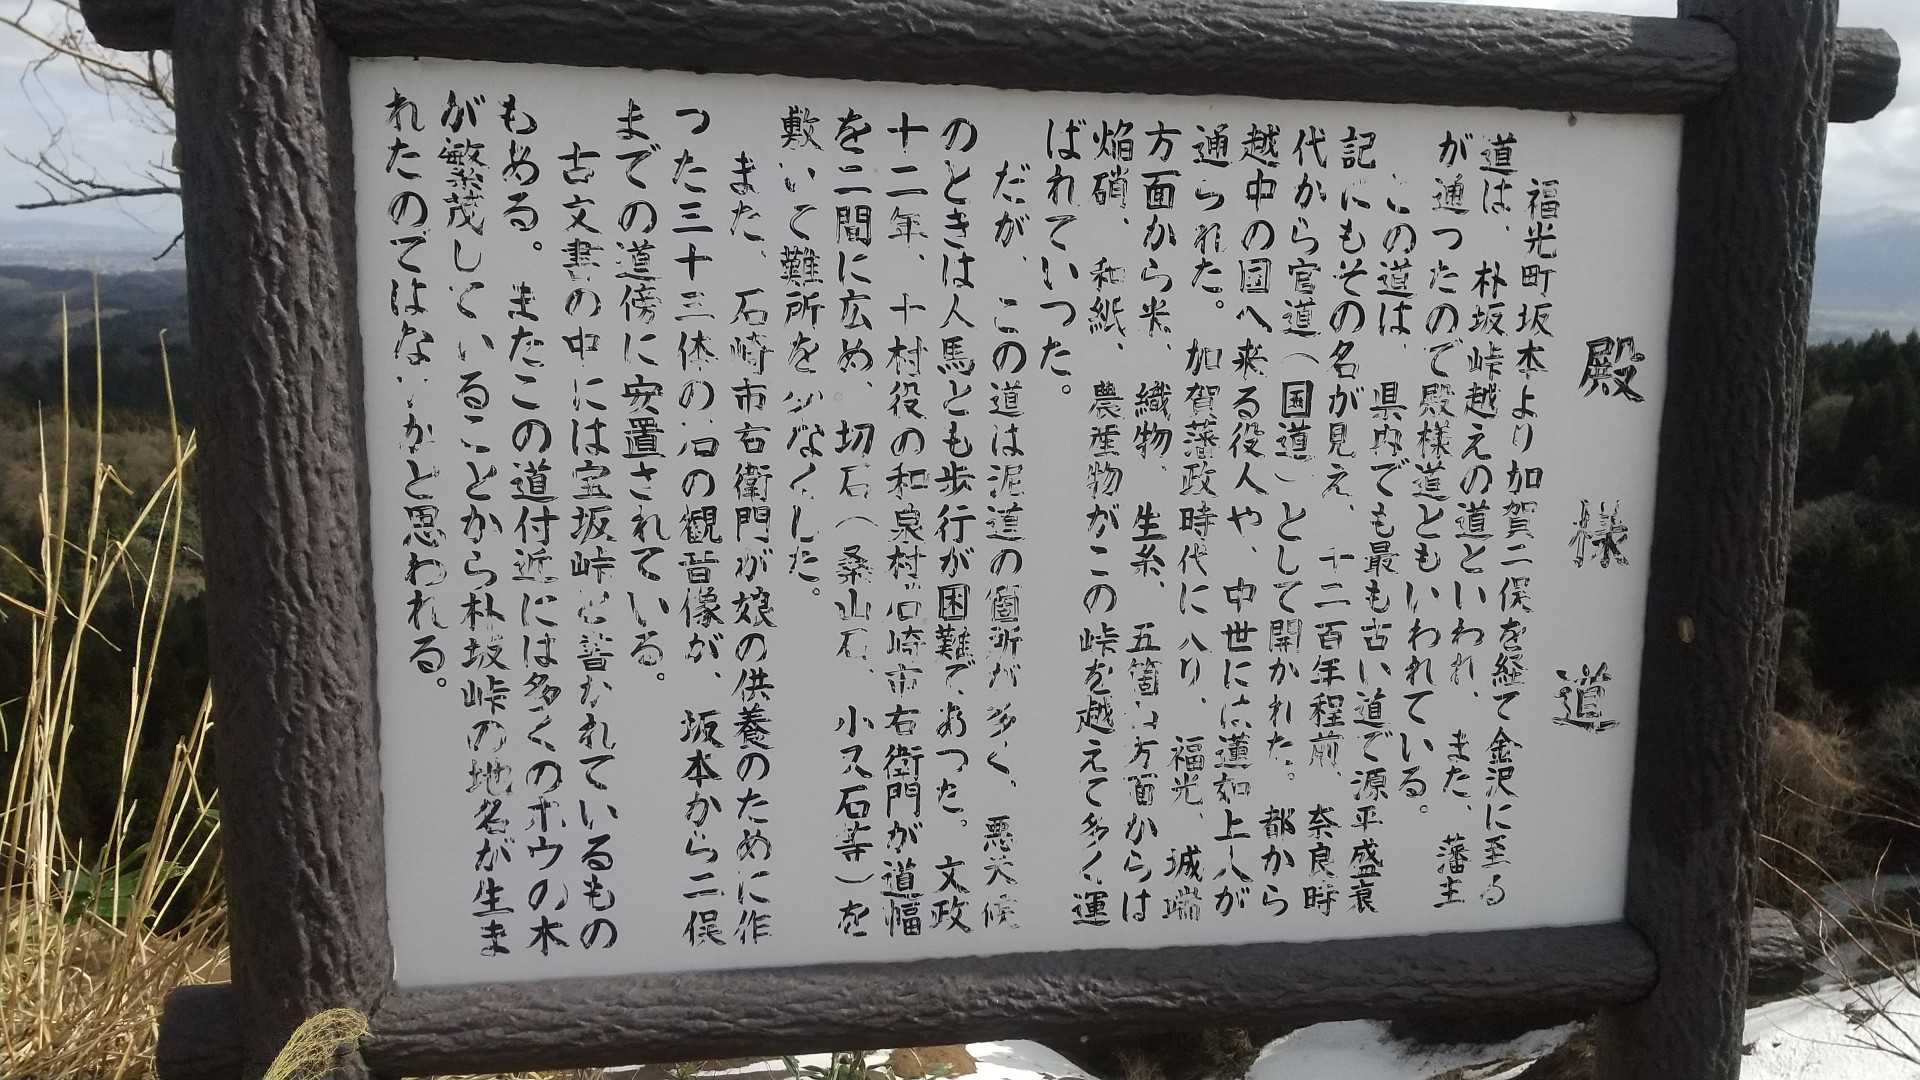 殿様道
福光町坂本より加賀二俣を経て金沢に至る
道は、朴坂峠越えの道といわれ、また、藩主
が通ったので殿様道ともいわれている。
この道は、県内でも最も古い道で源平盛衰
記にもその名が見え、千二百年程前、奈良時
代から官道(国道)として開かれた。都から
越中の国へ来る役人や、中世には蓮如上人が
通られた。加賀藩政時代に入り、福光、城端
方面から米、織物、生糸、五箇山方面からは
焔硝、和紙、農産物がこの峠を越えて多く運
ばれていつた。
だが、この道は泥道の箇所が多く、悪天候
のときは人馬とも歩行が困難であつた。文政
十二年、十村役の和泉村石崎市右衛門が道幅
を二間に広め、切石(桑山石、小又石等)を
敷いて難所を少なくした。
また、石崎市右衛門が娘の供養のために作
つた三十三体の石の観音像が、坂本から二俣
までの道傍に安置されている。
古文書の中には宝坂峠と書かれているもの
もある。またこの道付近には多くのホウの木
が繁茂していることから朴坂峠の地名が生ま
れたのではないかと思われる。